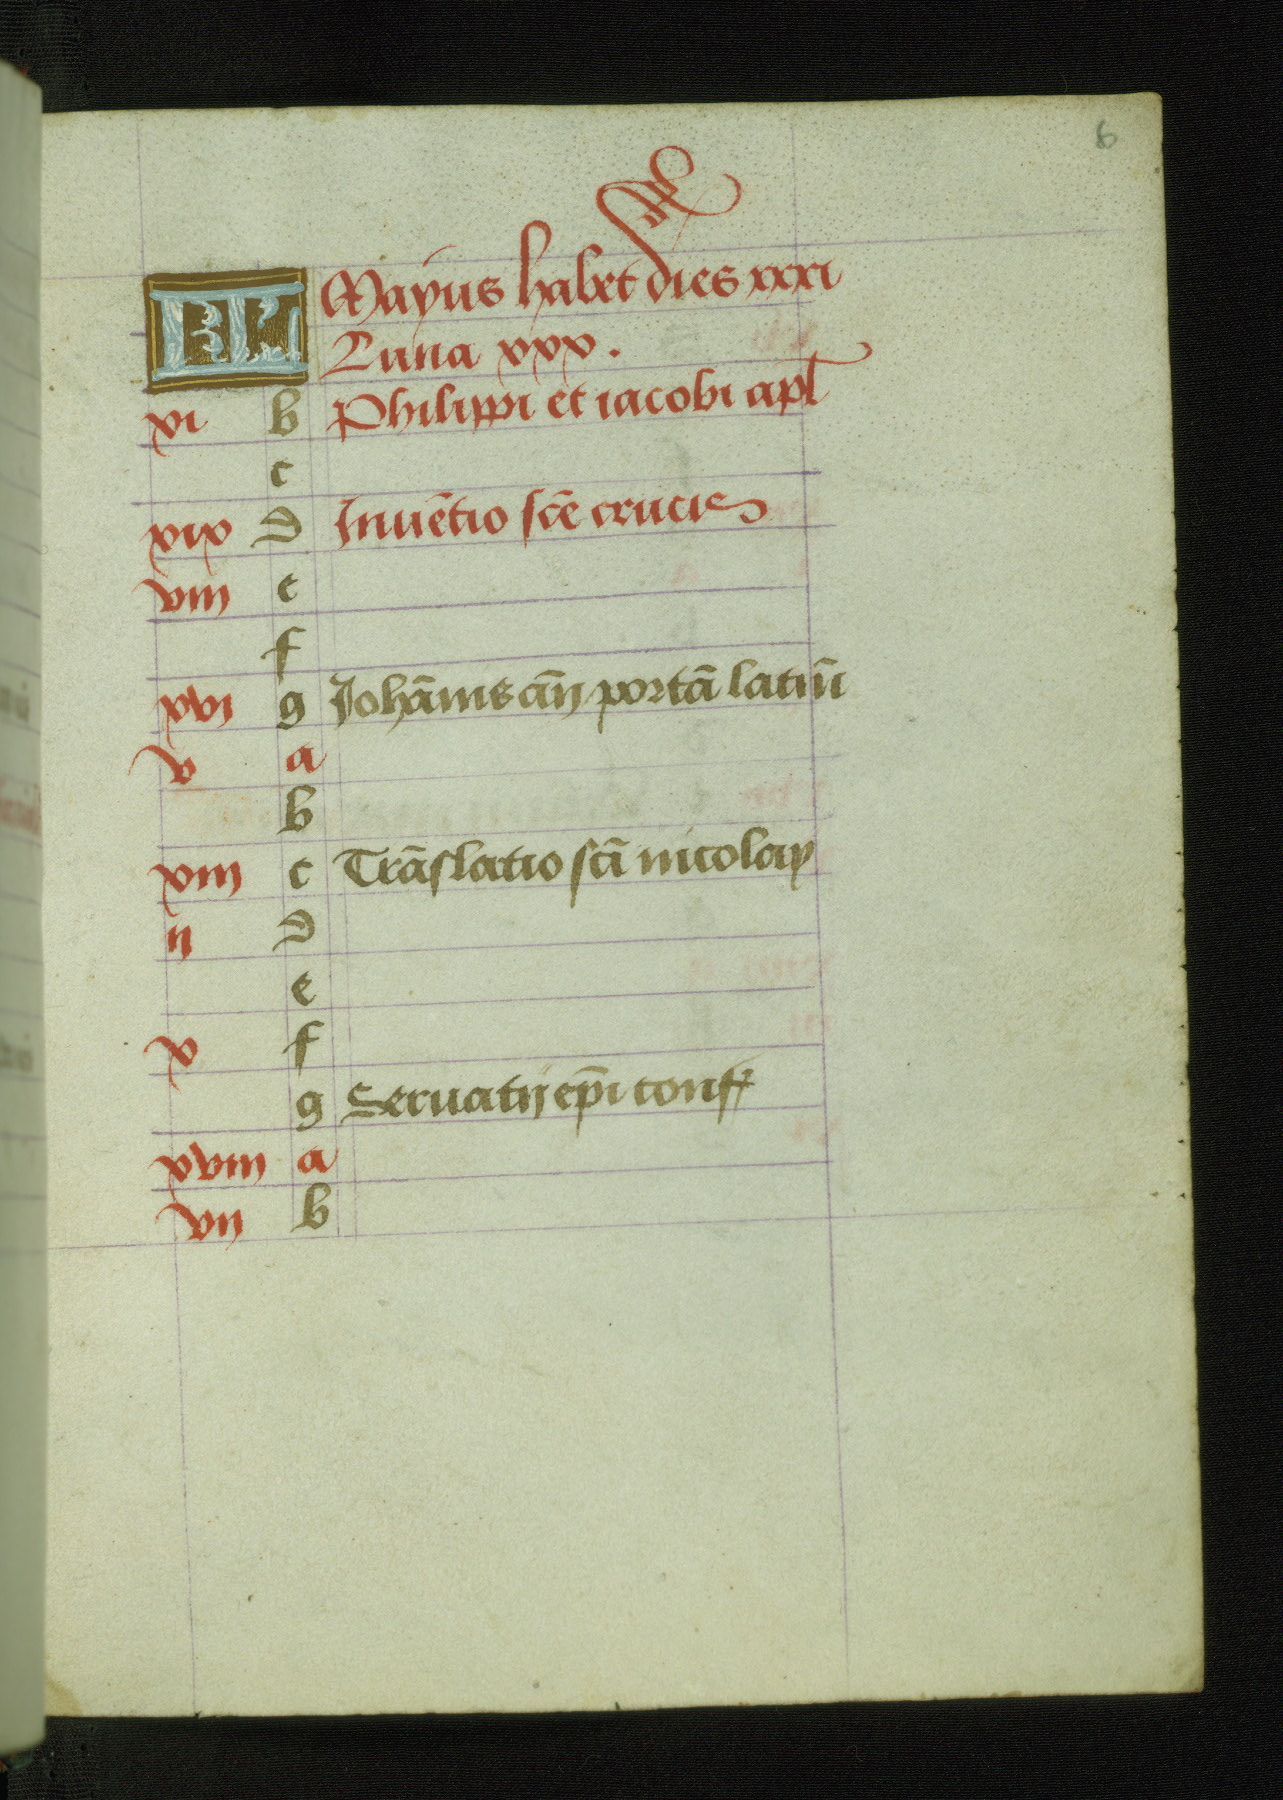 6
KL Mayus habet dies xxxi
Luna xxx.
xi b Philippi et iacobi apl
c
xix d Inuētio sc̄e crucis
viii e
f
xvi g Johānis an̄ portā latinā
v a
b
xiii c Trāslatio sc̄i nicolay
ii d
e
x f
g Seruatij ep̄i conf
xviii a
vii b